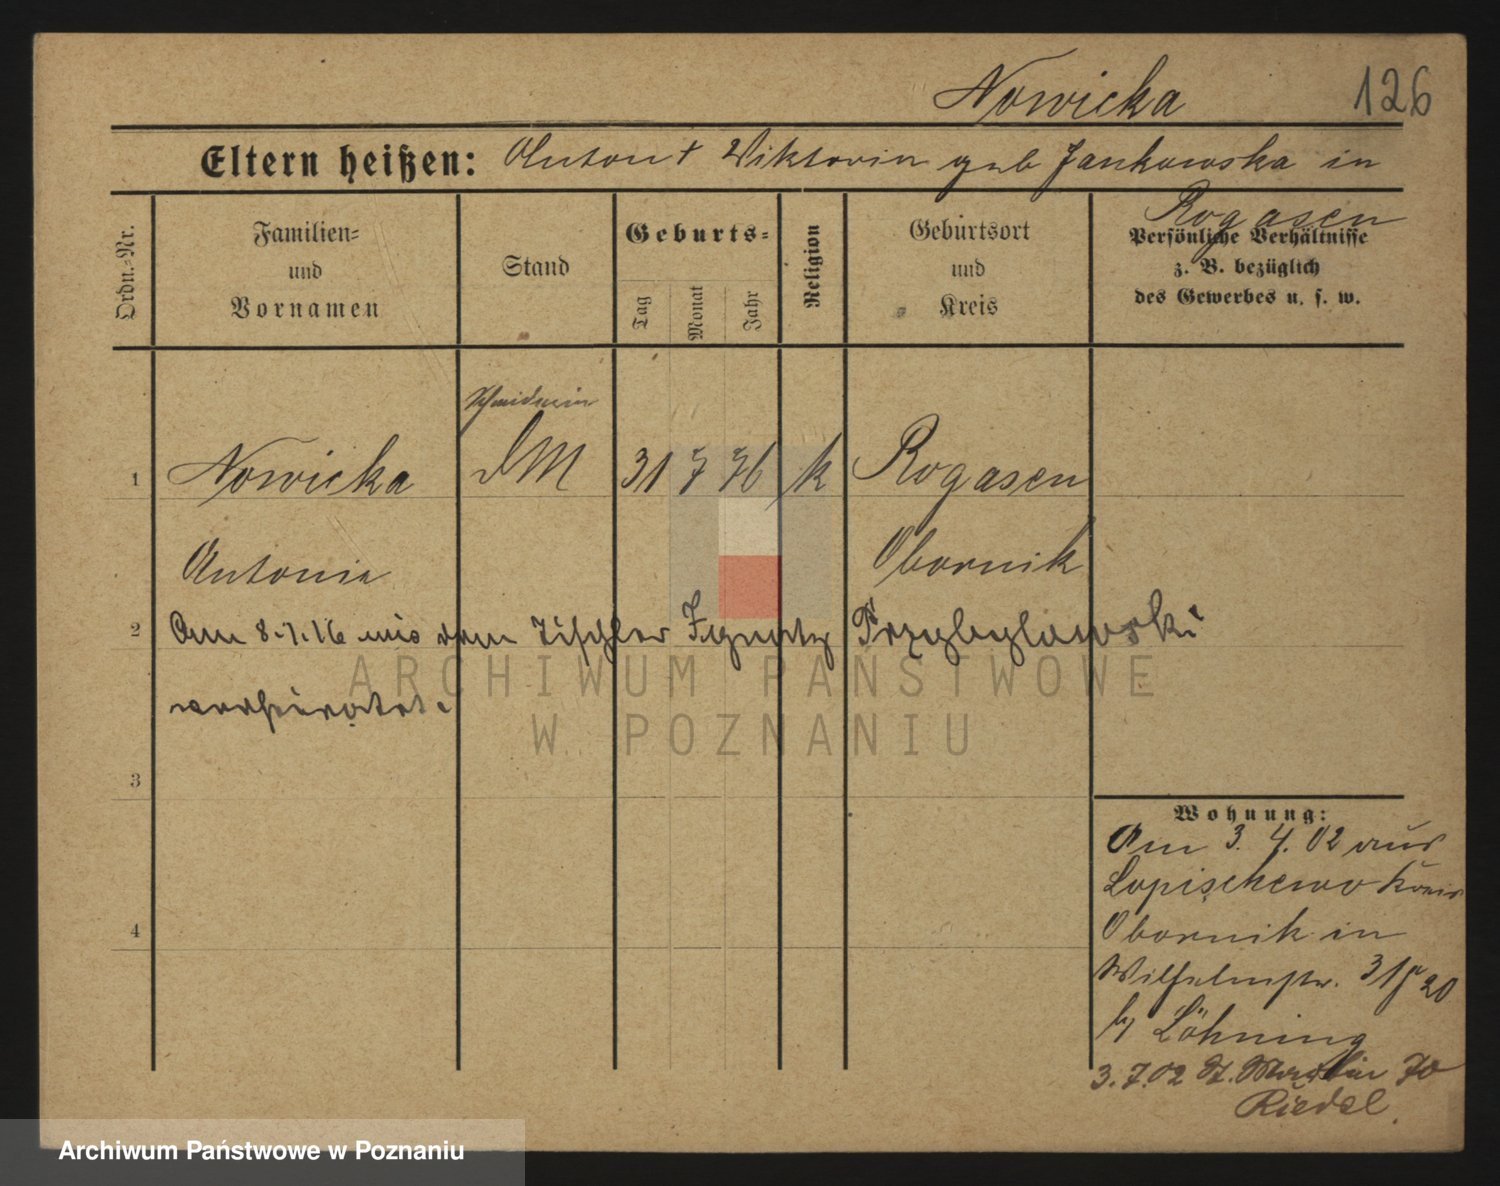 Nowicka
126
Eltern heißen: Anton + Viktoria geb Jankowska in
Rogasen
Ordn.-Nr.
Familien-
und
Vornamen
Stand
Geburts-
Tag
Monat
Jahr
Religion
Geburtsort
und
Kreis
Persönliche Verhältnisse
z. B. bezüglich
des Gewerbes u. s. w.
1
Nowicka
DM
31 7 76
k
Rogasen
Antonie
Obornik
2
Am 8.1.16 mit dem Tischler Ignatz Przybylowski
verheiratet.
ARCHIWUM PAŃSTWOWE
W POZNANIU
3
4
Wohnung:
Am 3. 4. 02 aus
Lopischewo Kreis
Obornik in
Wilhelmstr. 20
b/ Löhning
3.7.02 St. Martin 70
Riedel.
Archiwum Państwowe w Poznaniu